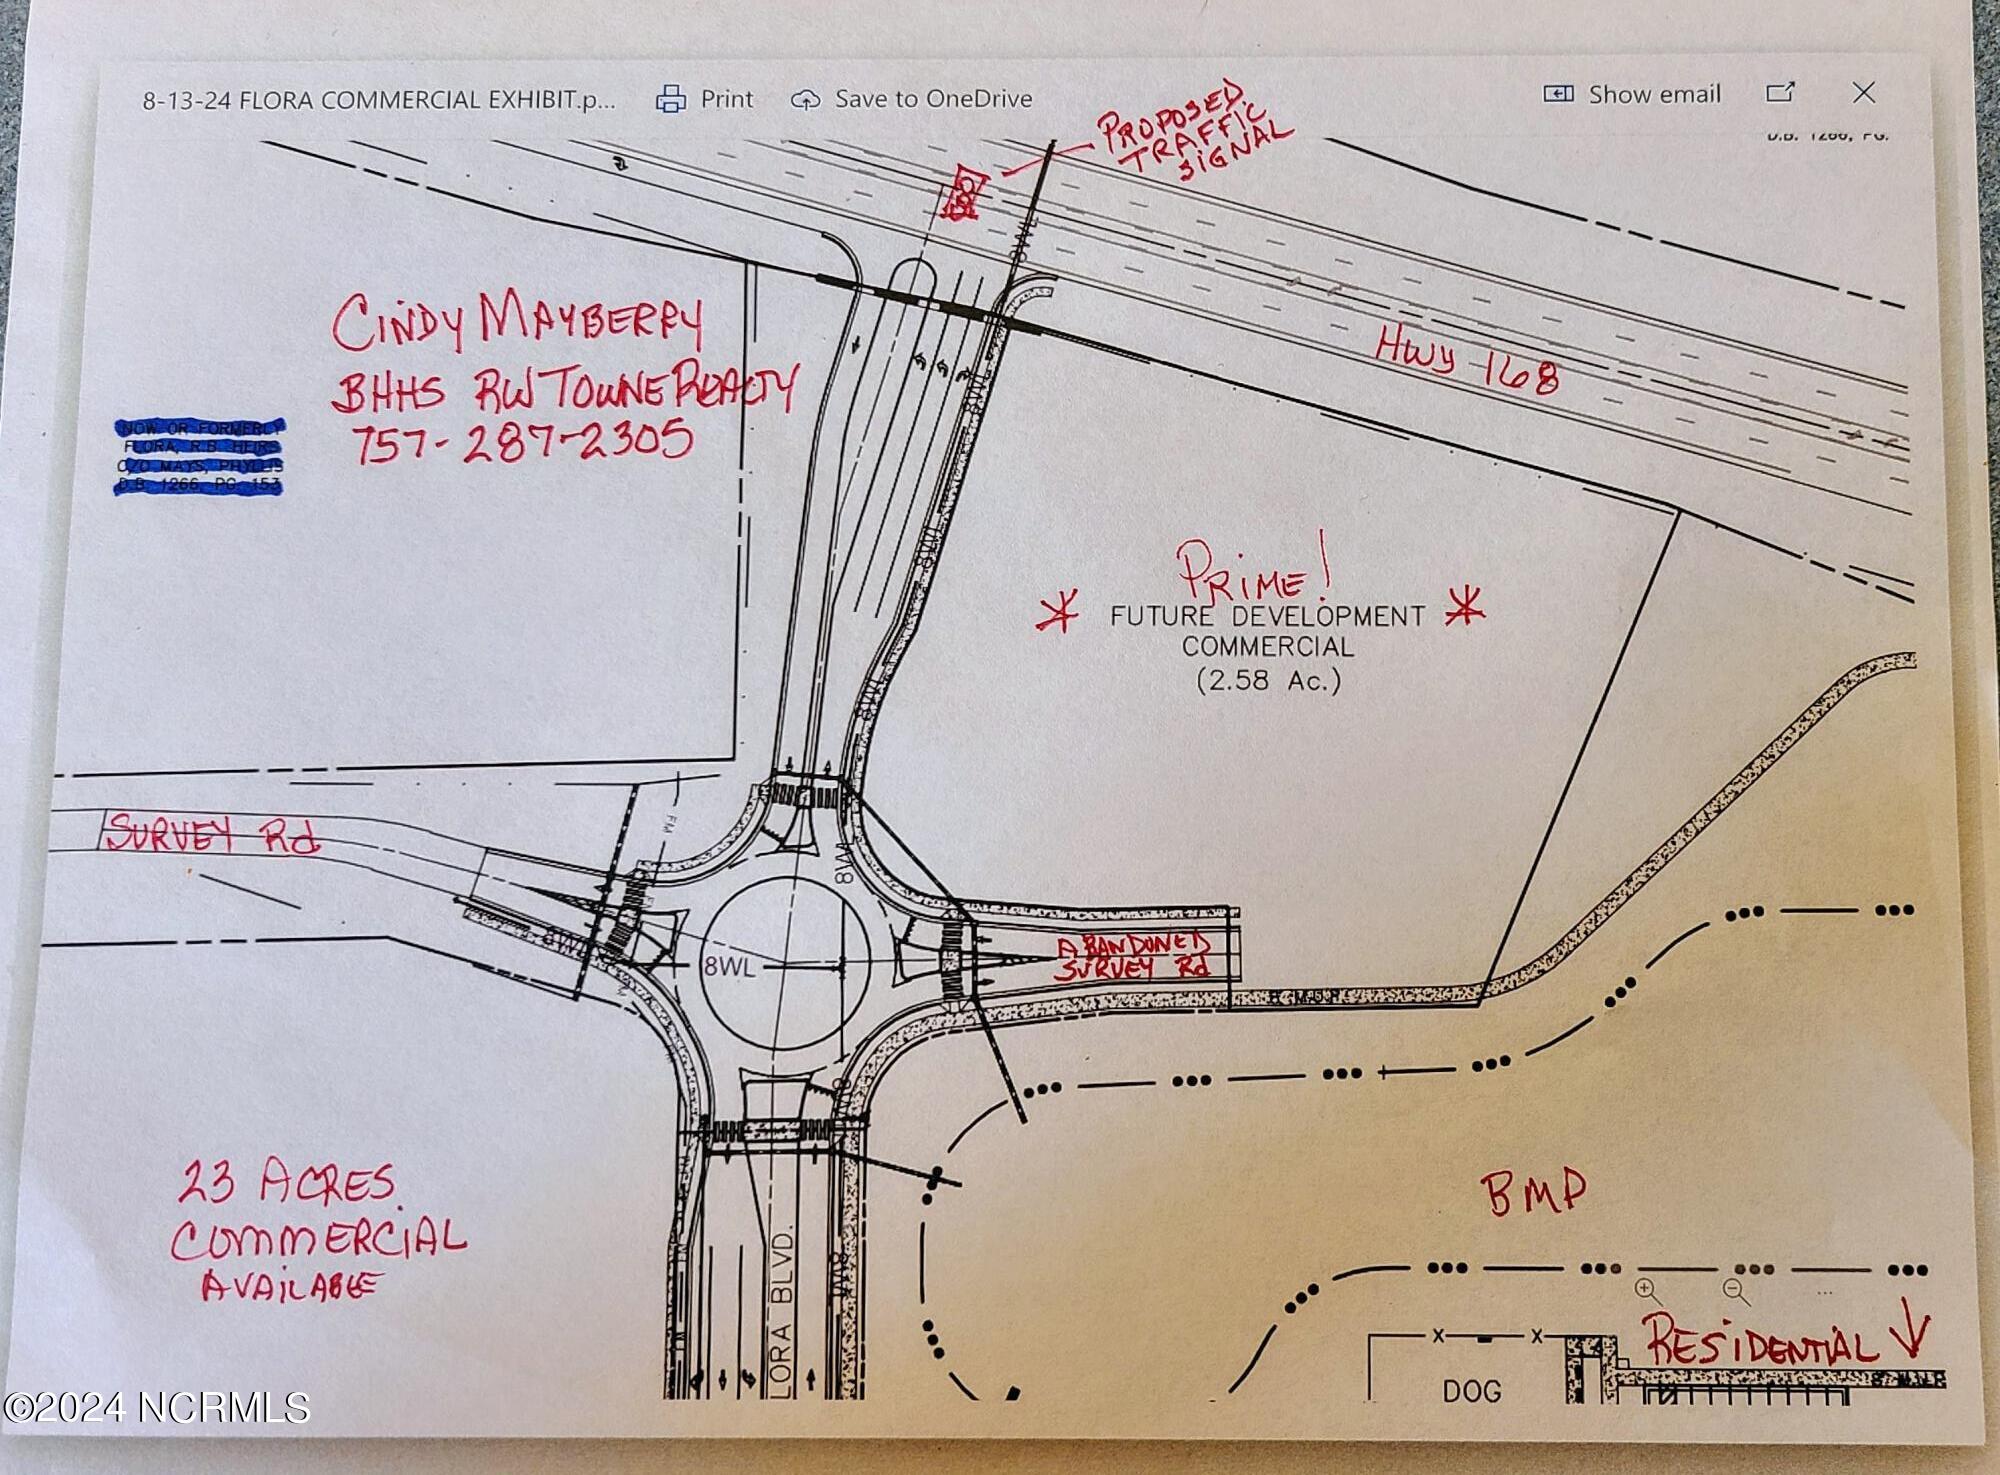 8-13-24 FLORA COMMERCIAL EXHIBIT.p...
Print
Save to OneDrive
Show email
D.B. 1266, PG.
PROPOSED
TRAFFIC
SIGNAL
8WL
CINDY MAYBERRY
BHHS RW TOWNE REALTY
757-287-2305
HWY 168
NOW OR FORMERLY
FLORA, R.B. HEIRS
C/O MAYS, PHYLLIS
D.B. 1266, PG. 153
8WL
8WL
PRIME!
FUTURE DEVELOPMENT
COMMERCIAL
(2.58 Ac.)
8WL
SURVEY Rd
FM
8WL
8WL
8WL
ABANDONED
SURVEY Rd
23 ACRES
COMMERCIAL
AVAILABLE
BMP
8WL
LORA BLVD.
FM
X X
RESIDENTIAL
DOG
©2024 NCRMLS